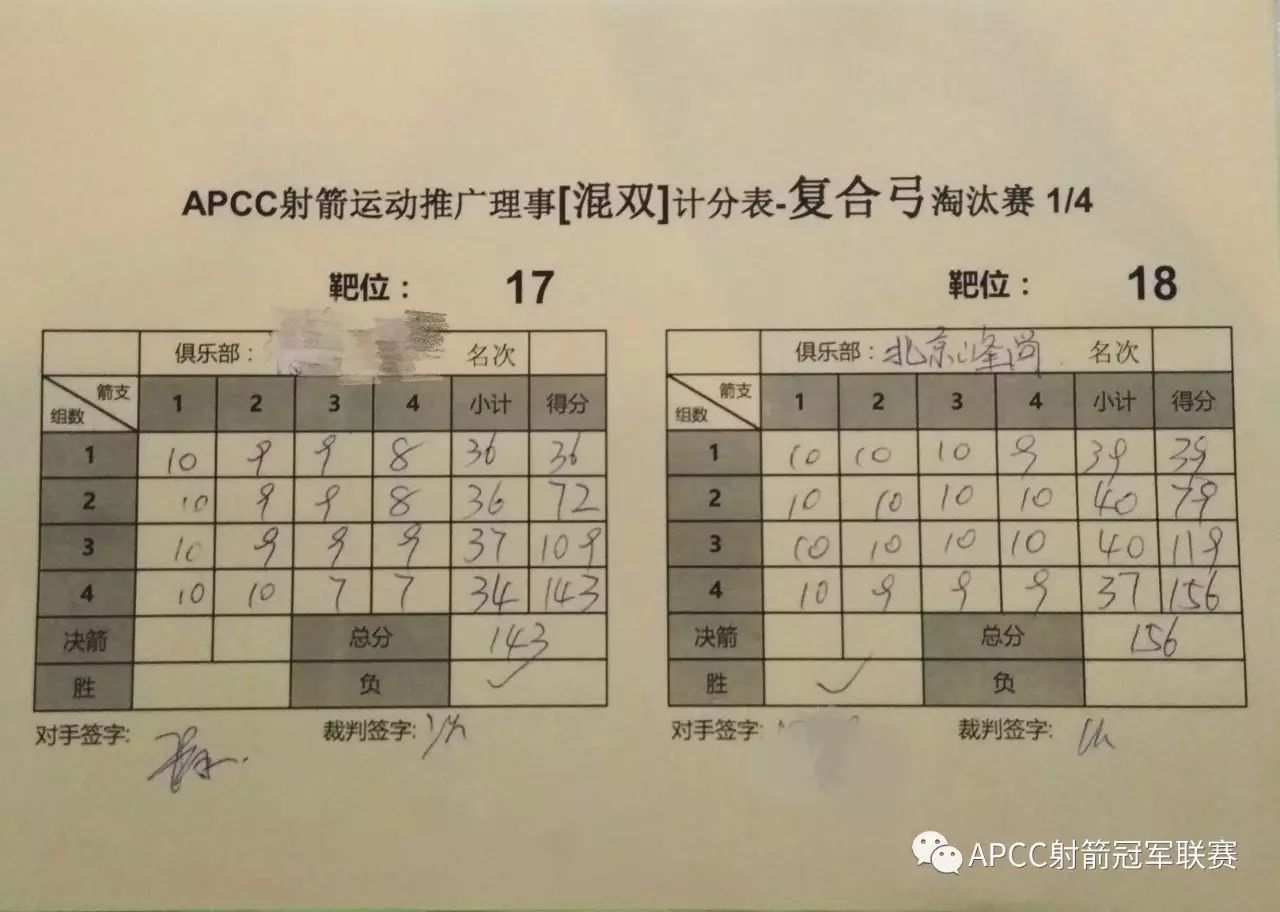 APCC射箭运动推广理事[混双]计分表-复合弓淘汰赛 1/4
靶位： 17
俱乐部： 名次
箭支 组数 1 2 3 4 小计 得分
1 10 9 9 8 36 36
2 10 9 9 8 36 72
3 10 9 9 9 37 109
4 10 10 7 7 34 143
决箭 总分 143
胜 负 ✓
对手签字: 裁判签字:
靶位： 18
俱乐部：北京峰尚 名次
箭支 组数 1 2 3 4 小计 得分
1 10 10 10 9 39 39
2 10 10 10 10 40 79
3 10 10 10 10 40 119
4 10 9 9 9 37 156
决箭 总分 156
胜 ✓ 负
对手签字: 裁判签字:
APCC射箭冠军联赛